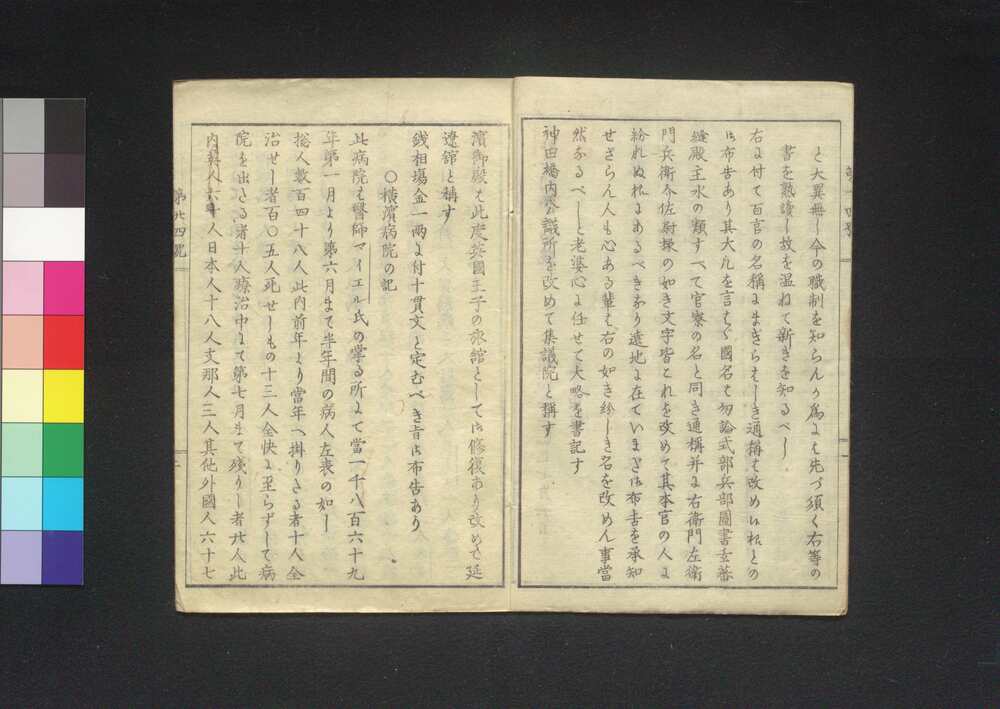 と大異無し今の職制を知らんか為には先づ須く右等の
書を熟讀し故を温ねて新きを知るべし
右に付て百官の名稱にまぎらはしき通稱は改め候様との
御布告あり其大凡を言はゞ國名は勿論式部兵部圖書玄蕃
縫殿主水の類すべて官察の名と同き通稱并に右衛門左衛
門兵衛介佐尉掾の如き文字皆これを改めて其本官の人に
紛れぬ様にあるべきなり遠地に在ていまだ御布告を承知
せざらん人も心ある輩は右の如き紛しき名を改めん事當
然なるべしと老婆心に任せて大略を書記す
神田橋内公議所を改めて集議院と稱す
濱御殿は此度英國王子の旅舘として御修復あり改めて延
遼舘と稱す
錢相場金一兩に付十貫文と定むべき旨御布告あり
〇横濱病院の記
此病院は醫師マイエル氏の掌る所にて當一千八百六十九
年第一月より第六月まて半年間の病人左表の如し
捴人數百四十八人此内前年より當年へ掛りたる者十人全
治せし者百〇五人死せしもの十三人全快に至らずして病
院を出たる者十人療治中にて第七月まて殘りし者廿人此
内英人六十人日本人十八人支那人三人其他外國人六十七
第廿四號